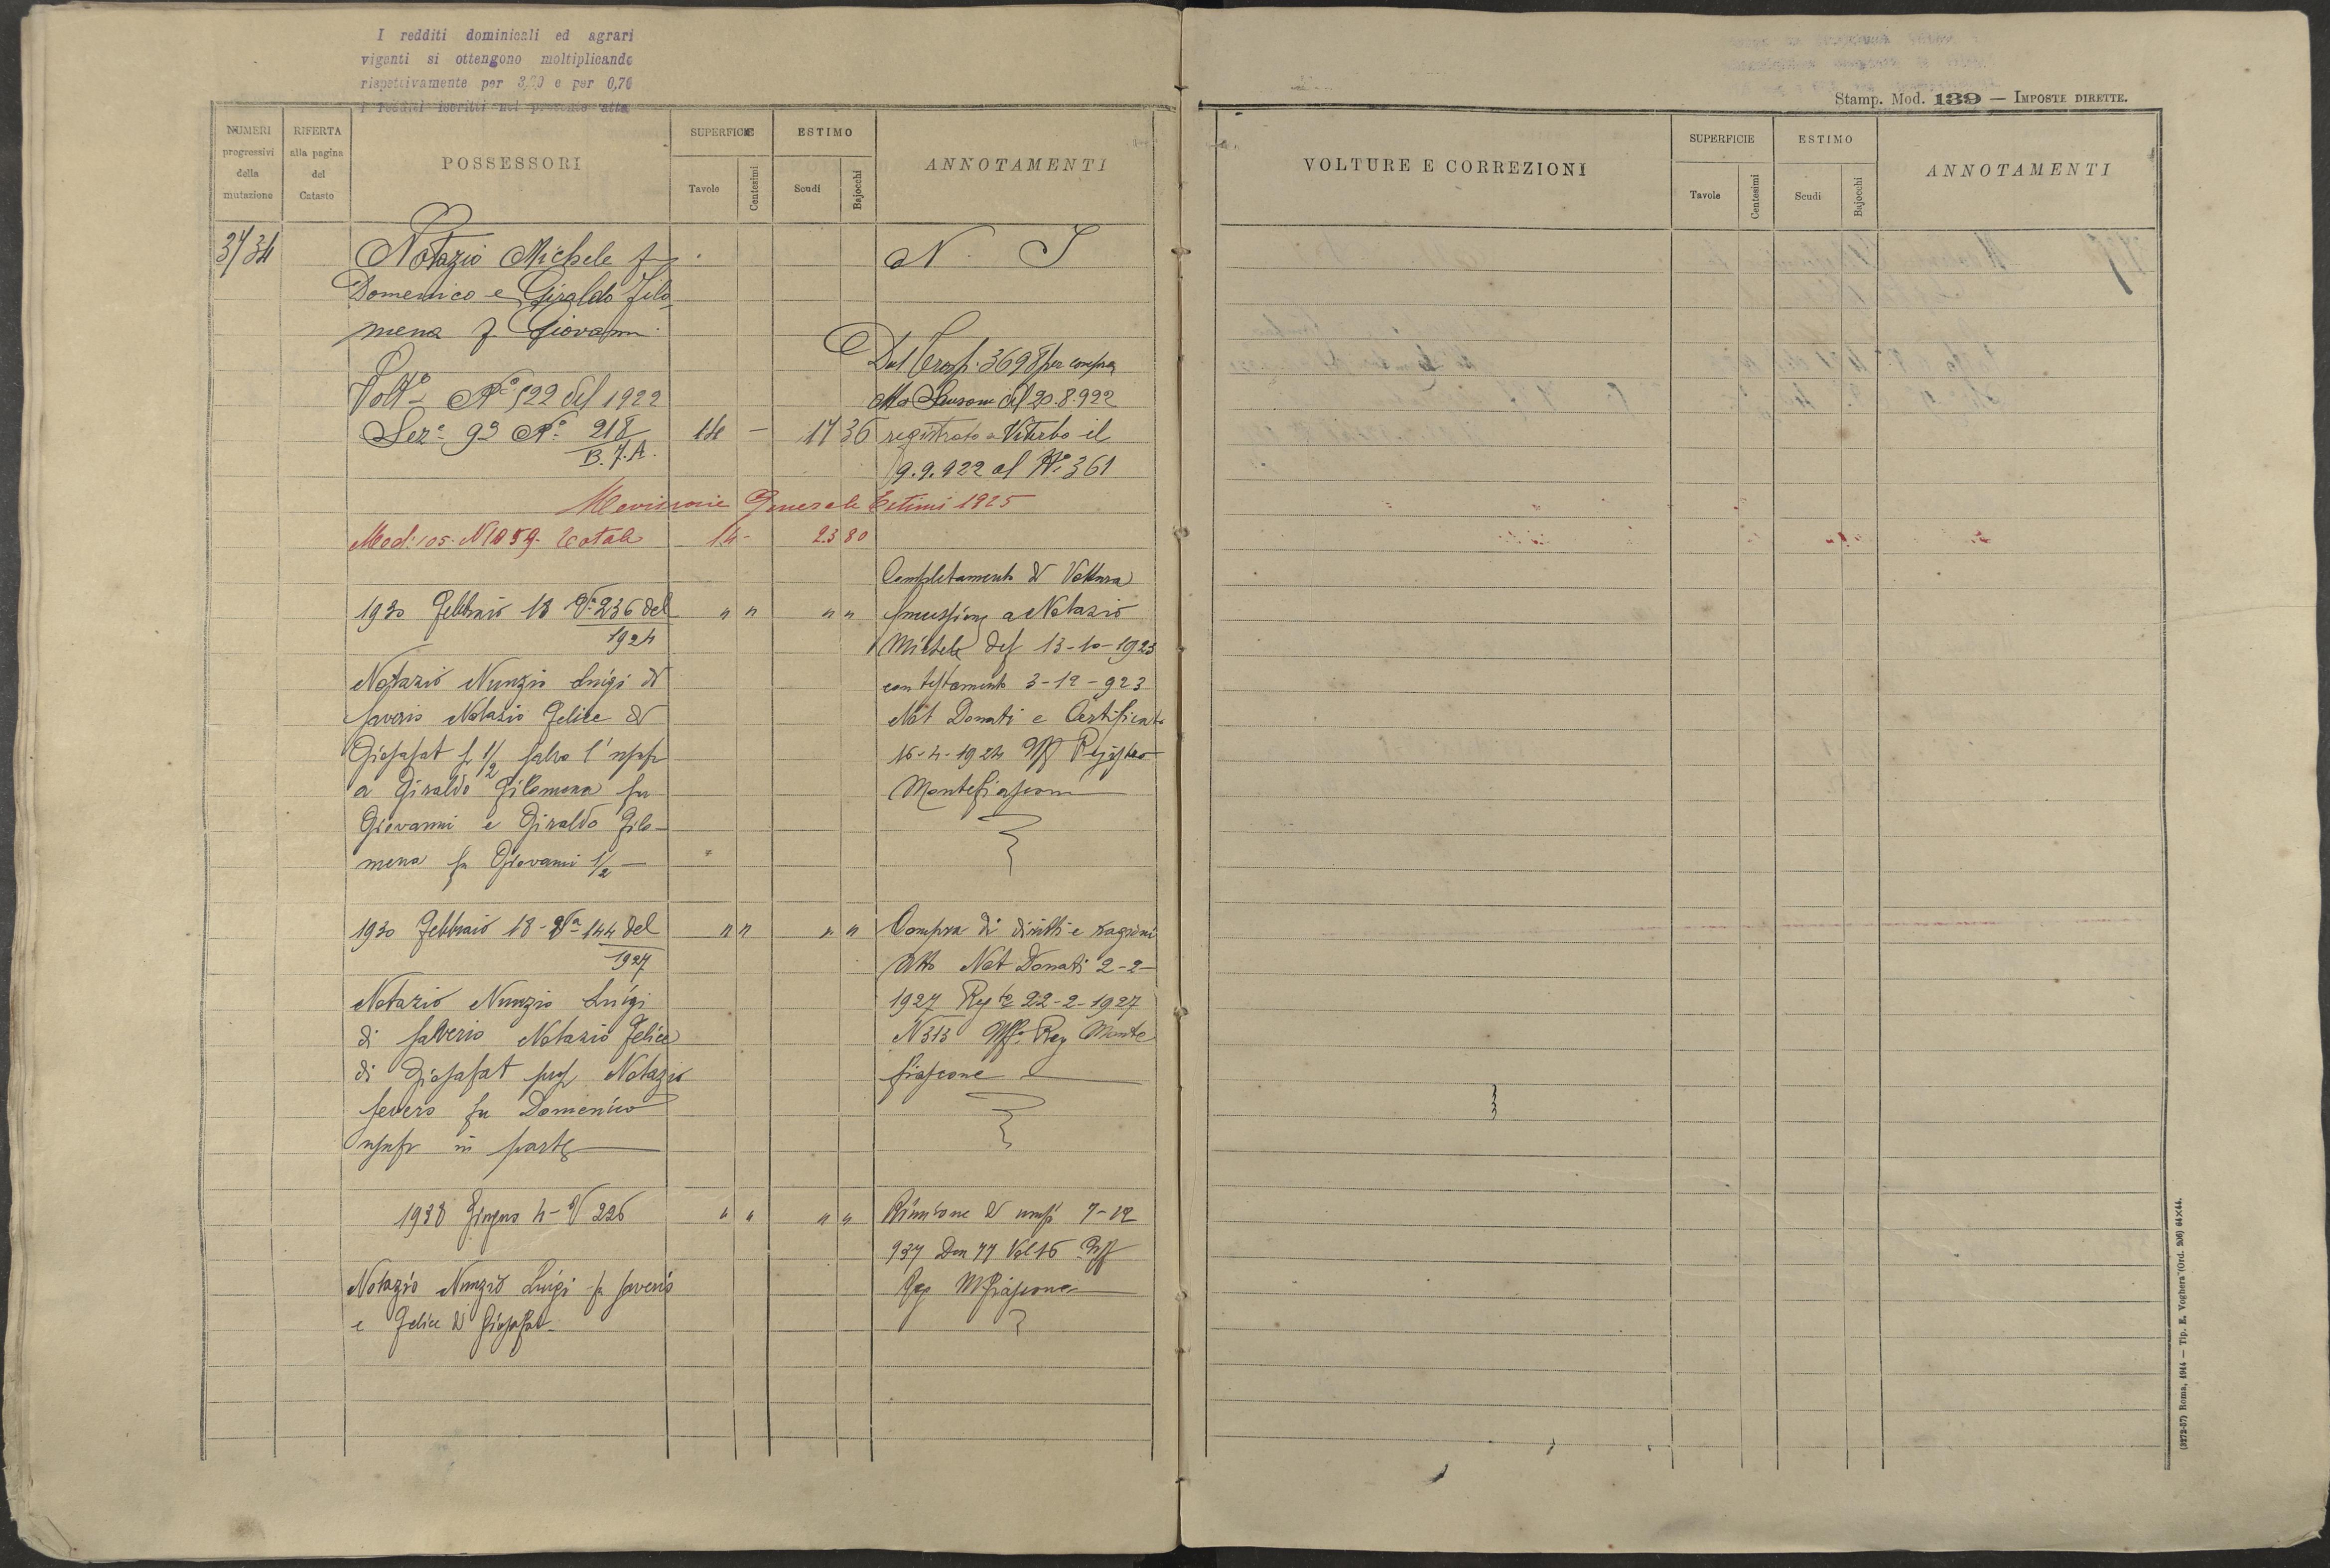 I redditi dominicali ed agrari
vigenti si ottengono moltiplicando
rispettivamente per 3, e per 0,76
i redditi iscritti nel presente atta
Stamp. Mod. 139 — IMPOSTE DIRETTE.
NUMERI progressivi della mutazione
RIFERTA alla pagina del Catasto
POSSESSORI
SUPERFICIE
Tavole
Centesimi
ESTIMO
Scudi
Bajocchi
ANNOTAMENTI
VOLTURE E CORREZIONI
SUPERFICIE
Tavole
Centesimi
ESTIMO
Scudi
Bajocchi
ANNOTAMENTI
3734 Notazio Michele fu N. I
Domenico e Giraldo Filo-
mena f. Giovanni
Dal Trasp. 3698 per compra
Volt. N° 522 del 1922 Atto del 20.8.922
Sez. 93 N° 218 14 — 17 36 registrato a Viterbo il
B.7.A. 9.9.922 al N° 361
Revisione Generale Estimi 1925
Mod. 105. N 1059. Totale 14 - 23 80
Completamento di Voltura
1930 Febbraio 18 V. 236 del " " " " Successione a Notazio
1924 Michele del 13-10-1923
Notazio Nunzio Luigi di con testamento 3-12-923
Saverio Notazio Felice di Not Donati e Certificato
Giosafat p 1/2 salvo l'usuf 16-4-1924 Uff Registro
a Giraldo Filomena fu Montefiascone
Giovanni e Giraldo Filo-
mena fu Giovanni 1/2 —
1930 Febbraio 18 - Va 144 del " " " " Compra di diritti e ragioni
1927 Atto Not Donati 2-2-
Notazio Nunzio Luigi 1927 Reg to 22-2-1927
di Saverio Notazio Felice N 313 Uff. Reg Monte
di Giosafat prop Notazio fiascone
Severo fu Domenico
usufr in parte
1938 Giugno 4 - V 226 " " " " Riunione di usuf 7-12
937 Den 77 Vol 16 Uff
Notazio Nunzio Luigi fu Saverio Reg M Fiascone
e Felice di Giosafat
(3272-57) Roma, 1914 — Tip. E. Voghera (Ord. 206) 64×44.